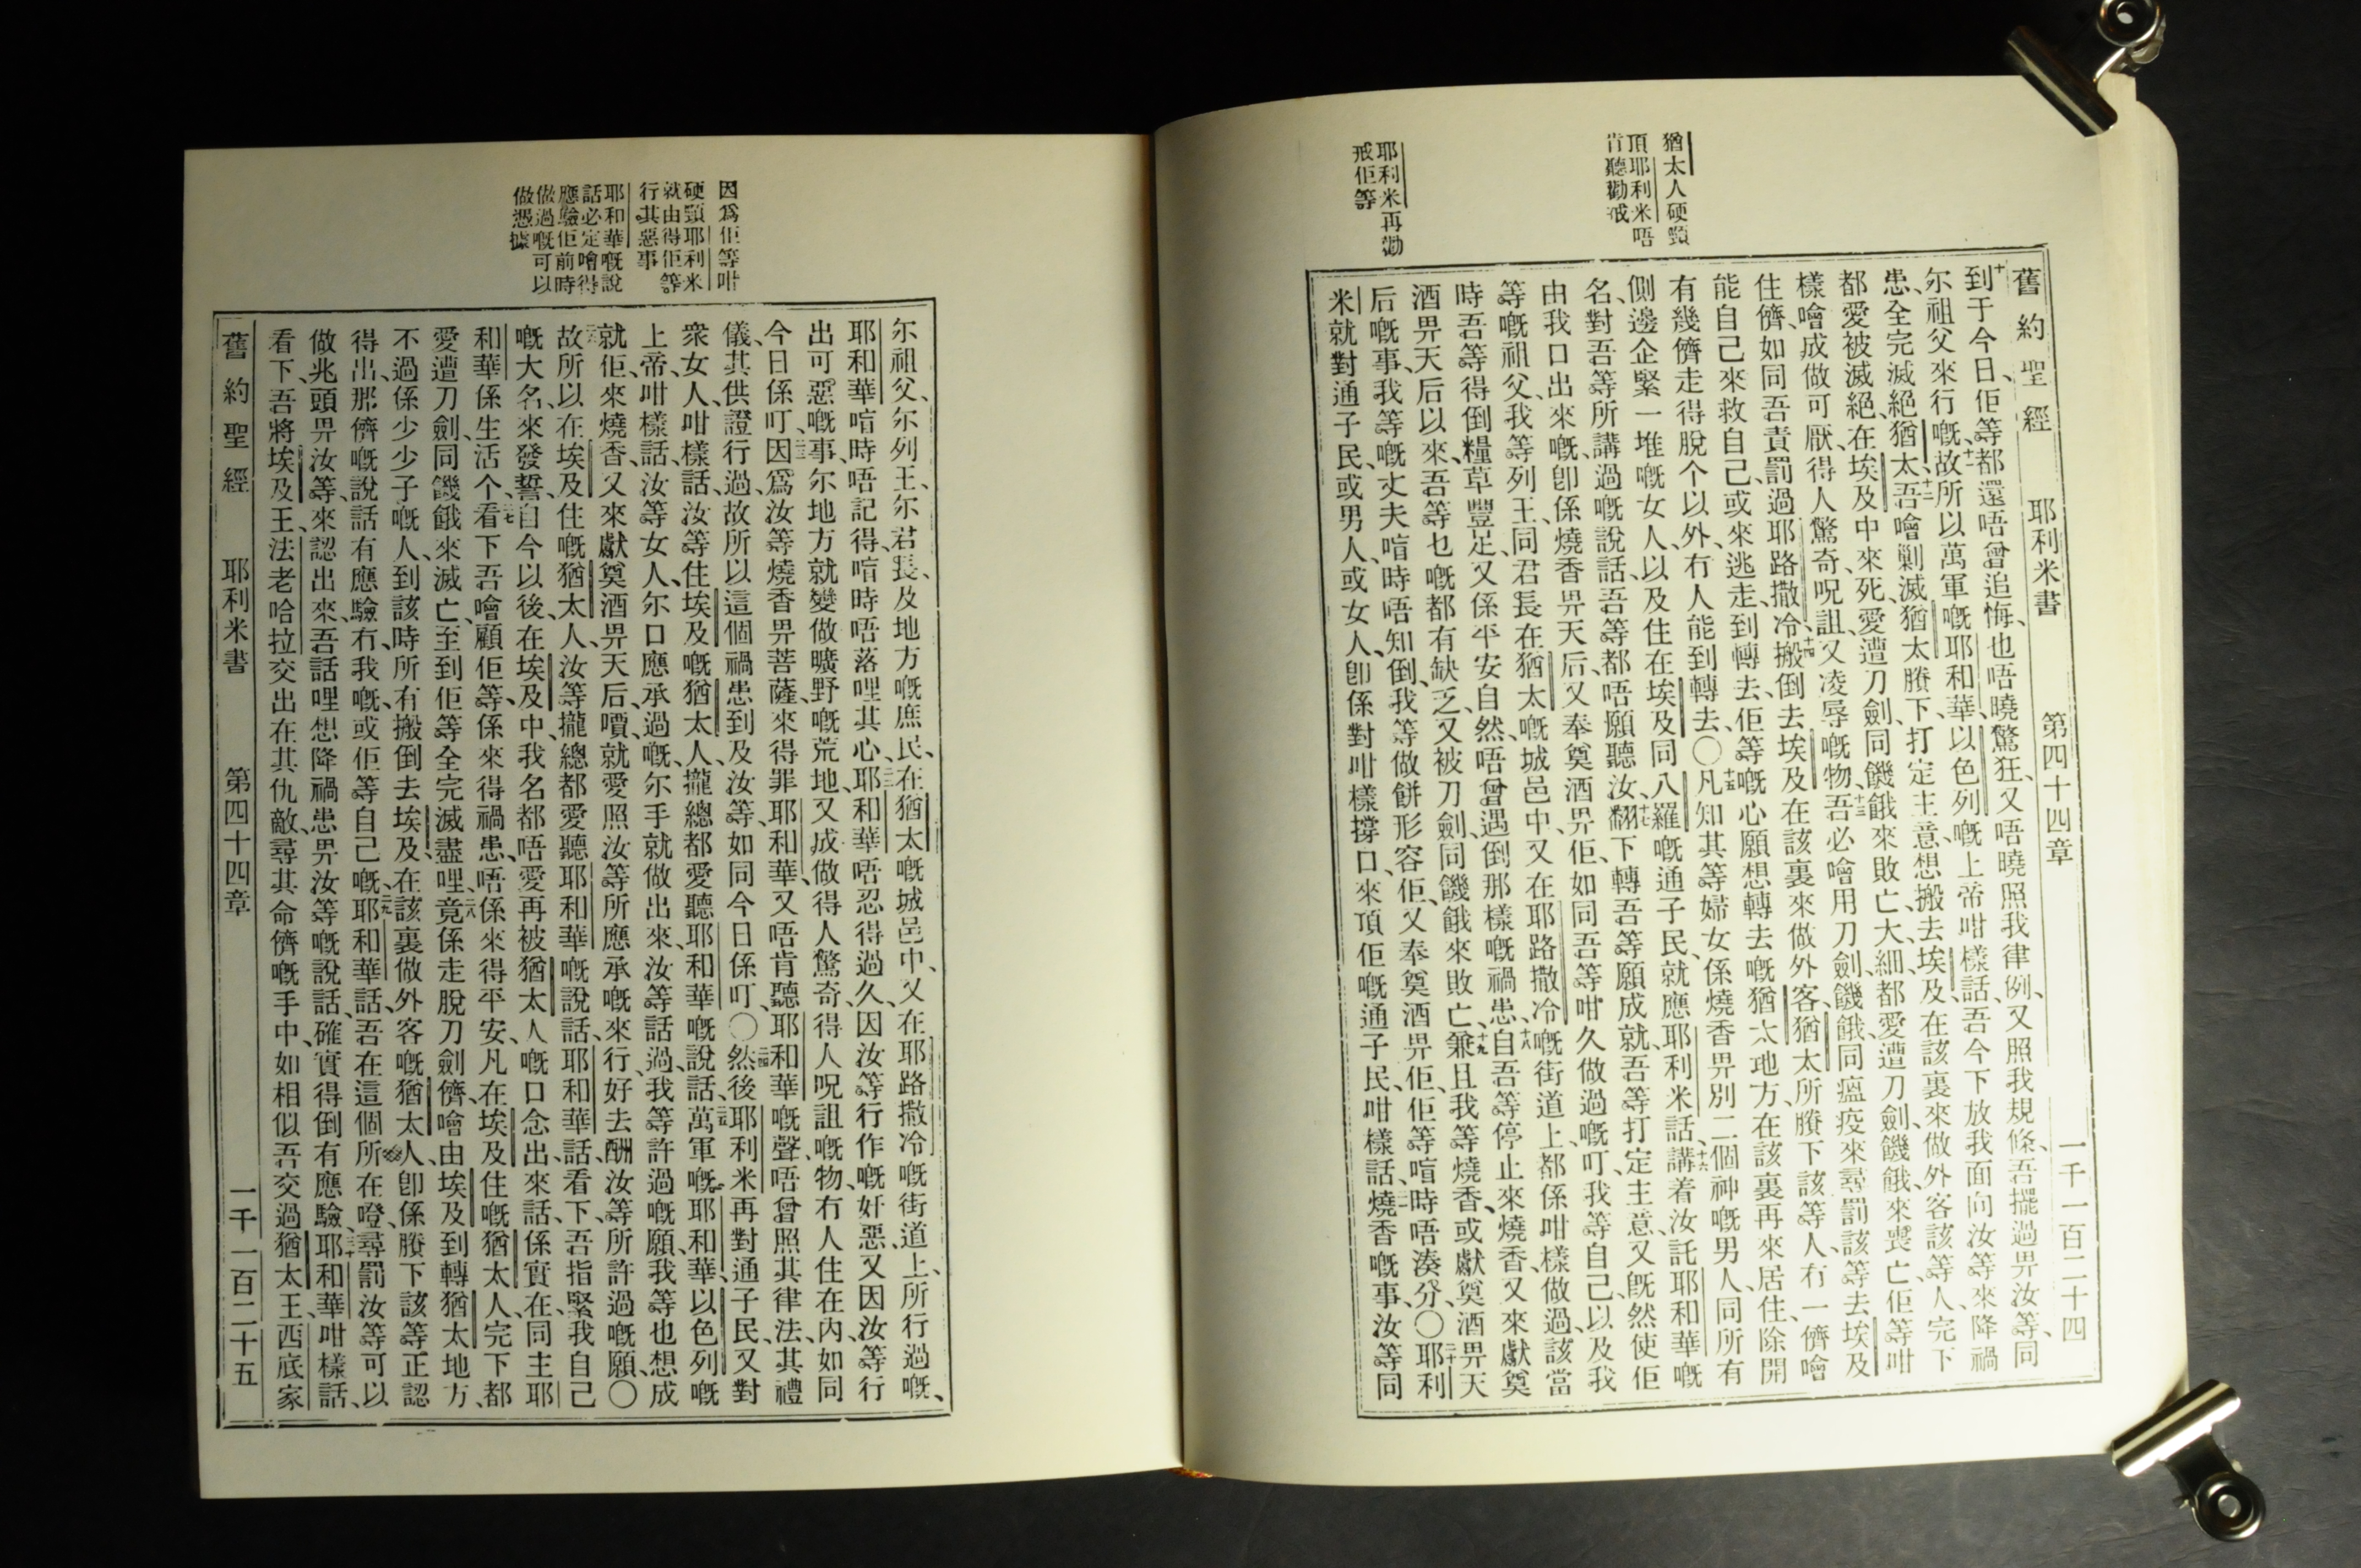 猶太人硬頸
頂耶利米唔
肯聽勸戒
耶利米再勸
戒佢等
舊約聖經 耶利米書 第四十四章 一千一百二十四
十到于今日、佢等都還唔曾追悔、也唔曉驚狂、又唔曉照我律例、又照我規條、吾擺過畀汝等、同
尓祖父來行嘅、十一故所以萬軍嘅耶和華、以色列嘅上帝咁樣話、吾今下放我面向汝等、來降禍
患、全完滅絕猶太、十二吾噲剿滅猶太賸下、打定主意、想搬去埃及、在該裏來做外客該等人、完下
都愛被滅絕、在埃及中來死、愛遭刀劍、同饑餓來敗亡、大細都愛遭刀劍、饑餓、來喪亡、佢等咁
樣噲成做可厭、得人驚奇、呪詛、又凌辱嘅物、十三吾必噲用刀劍、饑餓、同瘟疫來尋罰該等去埃及
住儕、如同吾責罰過耶路撒冷、十四搬倒去埃及在該裏來做外客、猶太所賸下該等人、冇一儕噲
能自己來救自己、或來逃走、到轉去、佢等嘅心願想轉去嘅猶太地方、在該裏再來居住、除開
有幾儕走得脫个以外、冇人能到轉去、〇十五凡知其等婦女係燒香畀別二個神嘅男人、同所有
側邊企緊一堆嘅女人、以及住在埃及同八羅嘅通子民、就應耶利米話、十六講着汝託耶和華嘅
名、對吾等所講過嘅說話、吾等都唔願聽汝、十七翻下轉吾等願成就、吾等打定主意、又既然使佢
由我口出來嘅、卽係燒香畀天后、又奉奠酒畀佢、如同吾等咁久做過嘅叮、我等自己、以及我
等嘅祖父、我等列王、同君長在猶太嘅城邑中、又在耶路撒冷嘅街道上、都係咁樣做過、該當
時吾等得倒糧草豐足、又係平安自然、唔曾遇倒那樣嘅禍患、十八自吾等停止來燒香、又來獻奠
酒畀天后以來、吾等乜嘅都有缺乏、又被刀劍、同饑餓來敗亡、十九兼且我等燒香、或獻奠酒畀天
后嘅事、我等嘅丈夫、喧時唔知倒、我等做餅形容佢、又奉奠酒畀佢、佢等喧時唔湊分、〇二十耶利
米就對通子民、或男人、或女人、卽係對咁樣撐口、來頂佢嘅通子民、咁樣話、二一燒香嘅事、汝等同
因爲佢等咁
硬頸耶利米
就由得佢等
行其惡事
耶和華嘅說
話必定噲得
應驗佢前時
做過嘅可以
做憑據
尓祖父、尓列王、尓君長、及地方嘅庶民、在猶太嘅城邑中、又在耶路撒冷嘅街道上、所行過嘅、
耶和華喧時唔記得、喧時唔落哩其心、二二耶和華唔忍得過久、因汝等行作嘅奸惡、又因汝等行
出可惡嘅事、尓地方就變做曠野嘅荒地、又成做得人驚奇、得人呪詛嘅物、冇人住在內、如同
今日係叮、二三因爲汝等燒香畀菩薩、來得罪耶和華、又唔肯聽耶和華嘅聲、唔曾照其律法、其禮
儀、其供證行過、故所以這個禍患到及汝等、如同今日係叮、〇二四然後耶利米再對通子民、又對
衆女人咁樣話、汝等住埃及嘅猶太人、攏總都愛聽耶和華嘅說話、二五萬軍嘅耶和華、以色列嘅
上帝、咁樣話、汝等女人、尓口應承過嘅、尓手就做出來、汝等話過、我等許過嘅願、我等也想成
就佢、來燒香、又來獻奠酒畀天后、嘖、就愛照汝等所應承嘅來行、好去酬汝等所許過嘅願、〇
二六故所以在埃及住嘅猶太人、汝等攏總都愛聽耶和華嘅說話、耶和華話、看下、吾指緊我自己
嘅大名、來發誓、自今以後、在埃及中、我名都唔愛再被猶太人嘅口念出來話、係實在、同主耶
和華係生活个、二七看下吾噲顧佢等、係來得禍患、唔係來得平安、凡在埃及住嘅猶太人、完下都
愛遭刀劍、同饑餓來滅亡、至到佢等全完滅盡哩、二八竟係走脫刀劍儕、噲由埃及到轉猶太地方、
不過係少少子嘅人、到該時所有搬倒去埃及、在該裏做外客嘅猶太人、卽係賸下該等、正認
得出那儕嘅說話有應驗冇、我嘅、或佢等自己嘅、二九耶和華話、吾在這個所在噔、尋罰汝等、可以
做兆頭畀汝等、來認出來、吾話哩想降禍患畀汝等嘅說話、確實得倒有應驗、三十耶和華咁樣話、
看下、吾將埃及王、法老哈拉交出在其仇敵、尋其命儕嘅手中、如相似吾交過猶太王西底家
舊約聖經 耶利米書 第四十四章 一千一百二十五